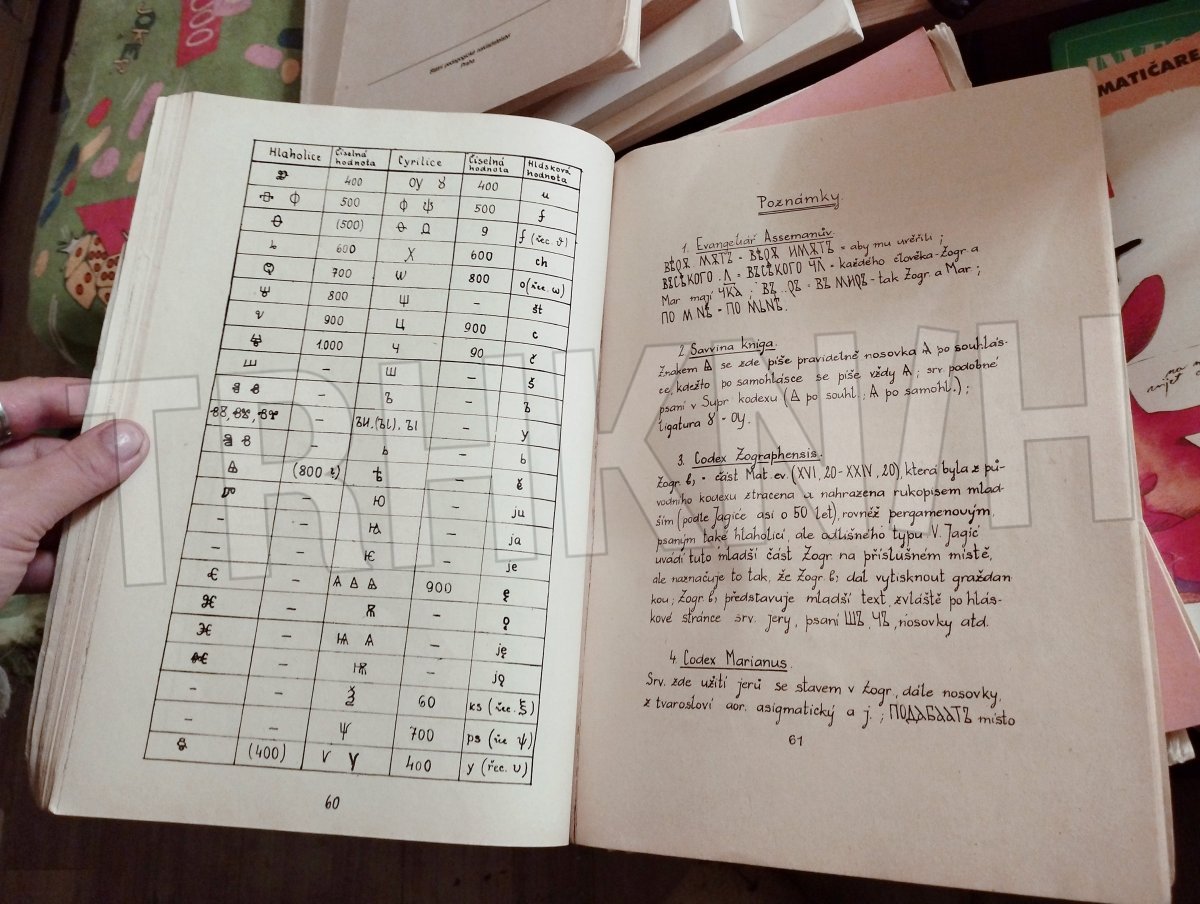 JOKER
000
Státní pedagogické nakladatelství
Praha
MATIČARE
Hlaholice Číselná hodnota Cyrilice Číselná hodnota Hlásková hodnota
400 ОУ Ȣ 400 u
500 Ф Ѱ 500 f
(500) Ѳ 9 f (řec. ϑ)
600 Х 600 ch
700 Ѡ 800 o (řec. ω)
800 Щ – št
900 Ц 900 c
1.000 Ч 90 č
Ш – Ш – š
– Ъ – ъ
– ЪИ, (ЪІ), ЪІ – y
– Ь – ь
(800 ?) Ѣ – ě
– Ю – ju
– – Ꙗ – ja
– – Ѥ – je
– Ѧ 900 ę
– Ѫ – ǫ
– Ѩ Ѧ – ję
– Ѭ – jǫ
– – Ѯ 60 ks (řec. ξ)
– – Ѱ 700 ps (řec. ψ)
(400) Ѵ 400 y (řec. υ)
60
Poznámky.
1. Evangeliář Assemanův.
ВѢРѪ МѦТЪ = ВѢРѪ ИМѦТЪ = aby mu uvěřili ;
ВЬСѢКОГО .Л = ВЬСѢКОГО ЧЛ = každého člověka - Zogr. a
Mar mají ЧКА ; ВЪ .РѢ = ВЪ МИРѢ - tak Zogr. a Mar ;
ПО М NѢ = ПО МЬNѢ.
2. Savvina kniga.
Znakem Ꙙ se zde píše pravidelně nosovka Ѧ po souhlás-
ce, kdežto po samohlásce se píše vždy Ѧ ; srv. podobné
psaní v Supr. kodexu (Ꙙ po souhl. ; Ѧ po samohl.) ;
ligatura Ȣ = ОУ.
3. Codex Zographensis.
Zogr. b, = část Mat. ev. (XVI, 20 - XXIV, 20), která byla z pů-
vodního kodexu ztracena a nahrazena rukopisem mlad-
ším (podle Jagiće asi o 50 let), rovněž pergamenovým,
psaným také hlaholicí, ale odlišného typu V. Jagić
uvádí tuto mladší část Zogr. na příslušném místě,
ale naznačuje to tak, že Zogr. b, dal vytisknout graždan
kou; Zogr. b, představuje mladší text, zvláště po hlás-
kové stránce srv. jery, psaní ШЪ, ЧЪ, nosovky atd.
4. Codex Marianus.
Srv. zde užití jerů se stavem v Zogr., dále nosovky,
z tvarosloví aor. asigmatický a j. ; ПОДАБААТЪ místo
61
TRHKNIH